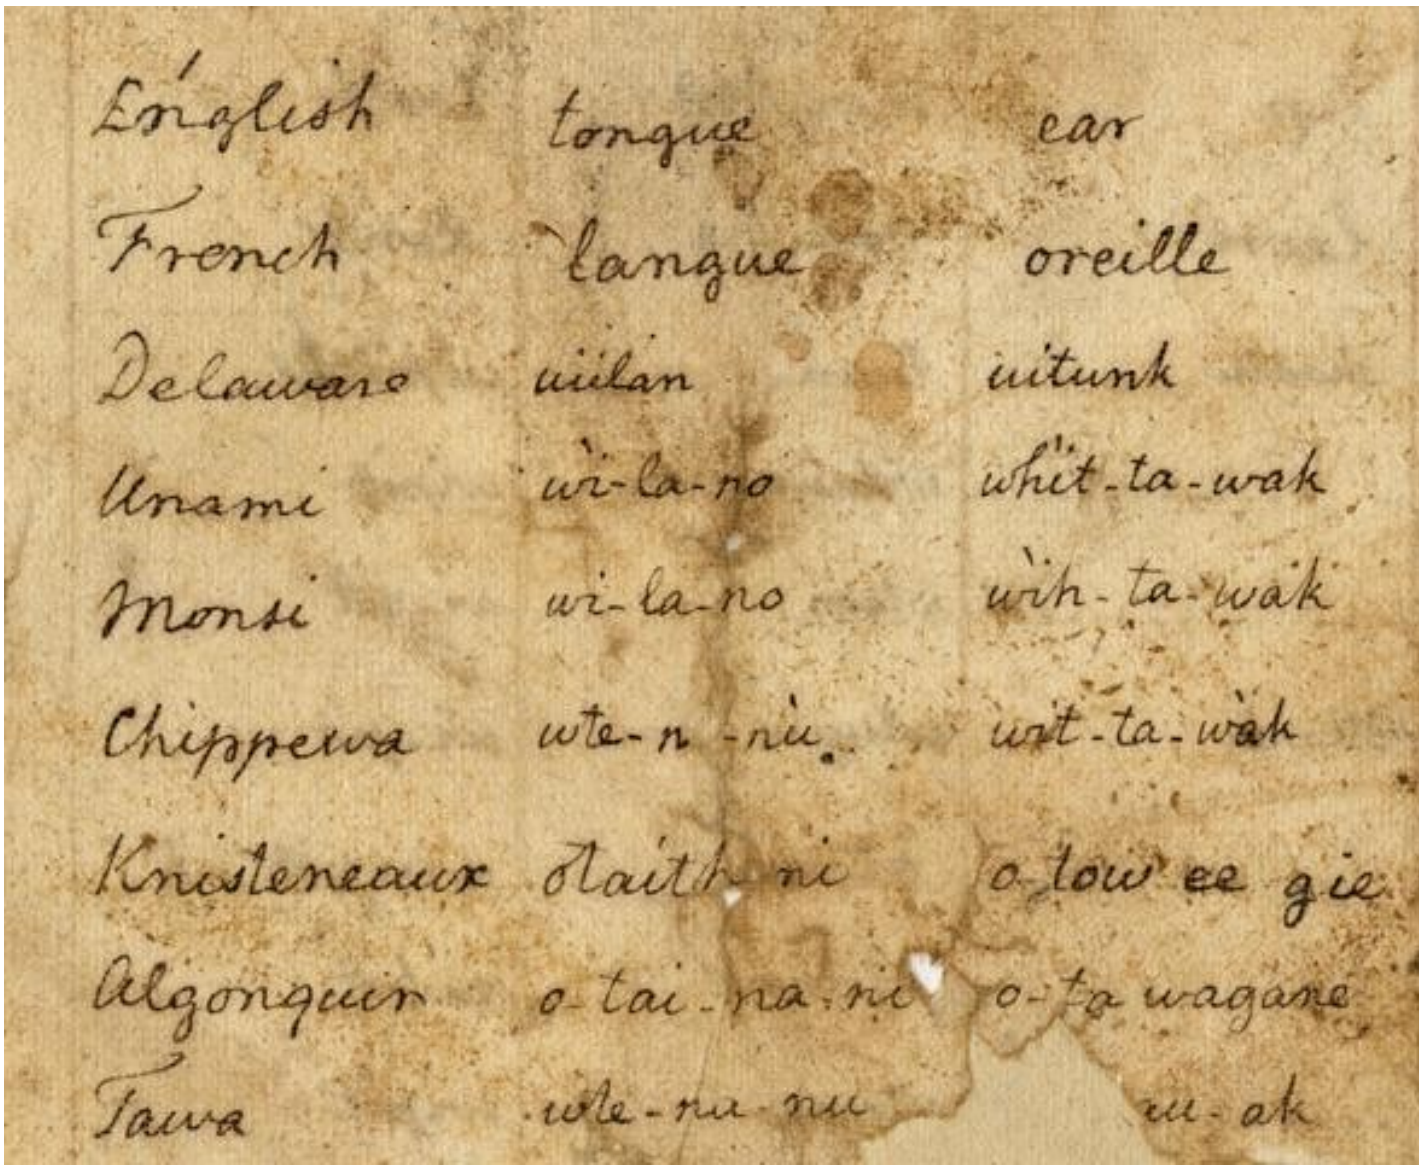 English tongue ear
French langue oreille
Delaware wiilan witunk
Unami wi-la-no whit-ta-wak
Monsi wi-la-no wih-ta-wak
Chippewa wte-n -nu wit-ta-wak
Knisteneaux otaith ni o tow ee gie
Algonquin o-tai-na-ni o-ta wagane
Tawa wte-nu nu ak